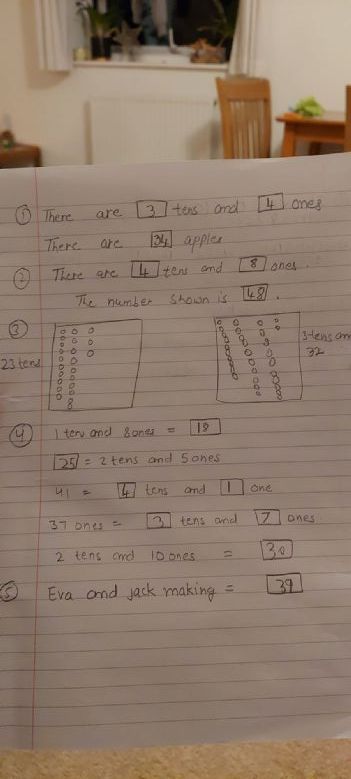 ① There are 3 tens and 4 ones
There are 34 apples
② There are 4 tens and 8 ones.
The number shown is 48.
③
23 tens
3 tens and
32
④ 1 tens and 8 ones = 18
25 = 2 tens and 5 ones
41 = 4 tens and 1 one
37 ones = 3 tens and 7 ones
2 tens and 10 ones = 30
⑤ Eva and jack making = 39